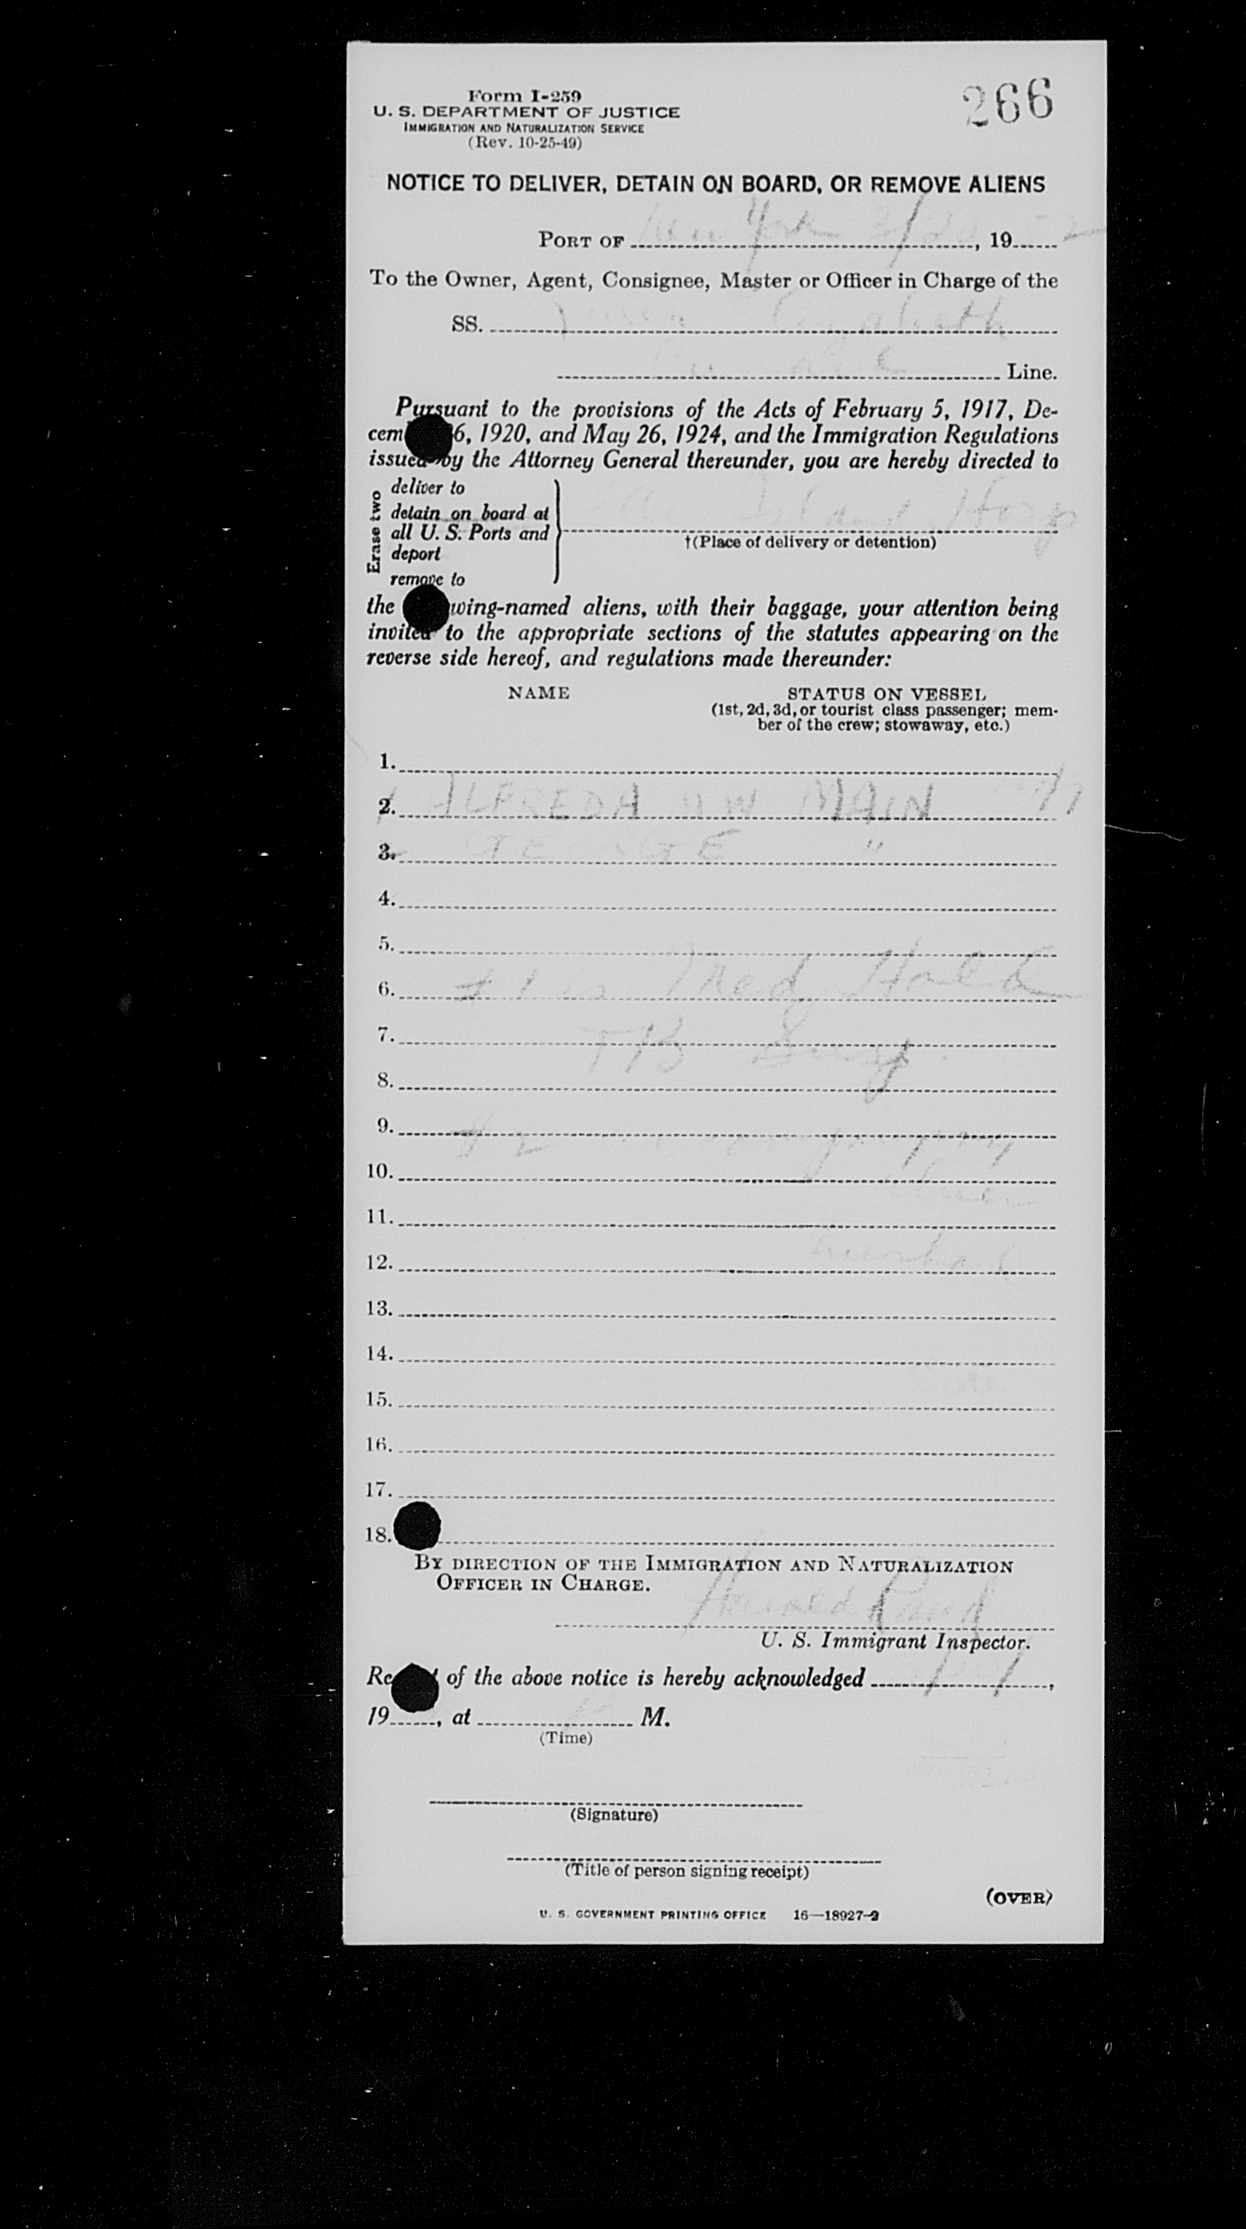 266
Form I-259
U. S. DEPARTMENT OF JUSTICE
IMMIGRATION AND NATURALIZATION SERVICE
(Rev. 10-25-49)
NOTICE TO DELIVER, DETAIN ON BOARD, OR REMOVE ALIENS
PORT OF New York, 19
To the Owner, Agent, Consignee, Master or Officer in Charge of the
SS. Elizabeth
Line.
Pursuant to the provisions of the Acts of February 5, 1917, De-
cem 6, 1920, and May 26, 1924, and the Immigration Regulations
issued by the Attorney General thereunder, you are hereby directed to
Erase two
deliver to
detain on board at
all U. S. Ports and
deport
remove to
Island Hosp
†(Place of delivery or detention)
the wing-named aliens, with their baggage, your attention being
invited to the appropriate sections of the statutes appearing on the
reverse side hereof, and regulations made thereunder:
NAME STATUS ON VESSEL
(1st, 2d, 3d, or tourist class passenger; mem-
ber of the crew; stowaway, etc.)
1.
2. ALFREDA MAIN
3. GEORGE "
4.
5.
6. Med Hold
7. TB Susp.
8.
9. #2
10.
11.
12.
13.
14.
15.
16.
17.
18.
BY DIRECTION OF THE IMMIGRATION AND NATURALIZATION
OFFICER IN CHARGE.
U. S. Immigrant Inspector.
Re of the above notice is hereby acknowledged ,
19 , at M.
(Time)
(Signature)
(Title of person signing receipt)
(OVER)
U. S. GOVERNMENT PRINTING OFFICE 16—18927-2